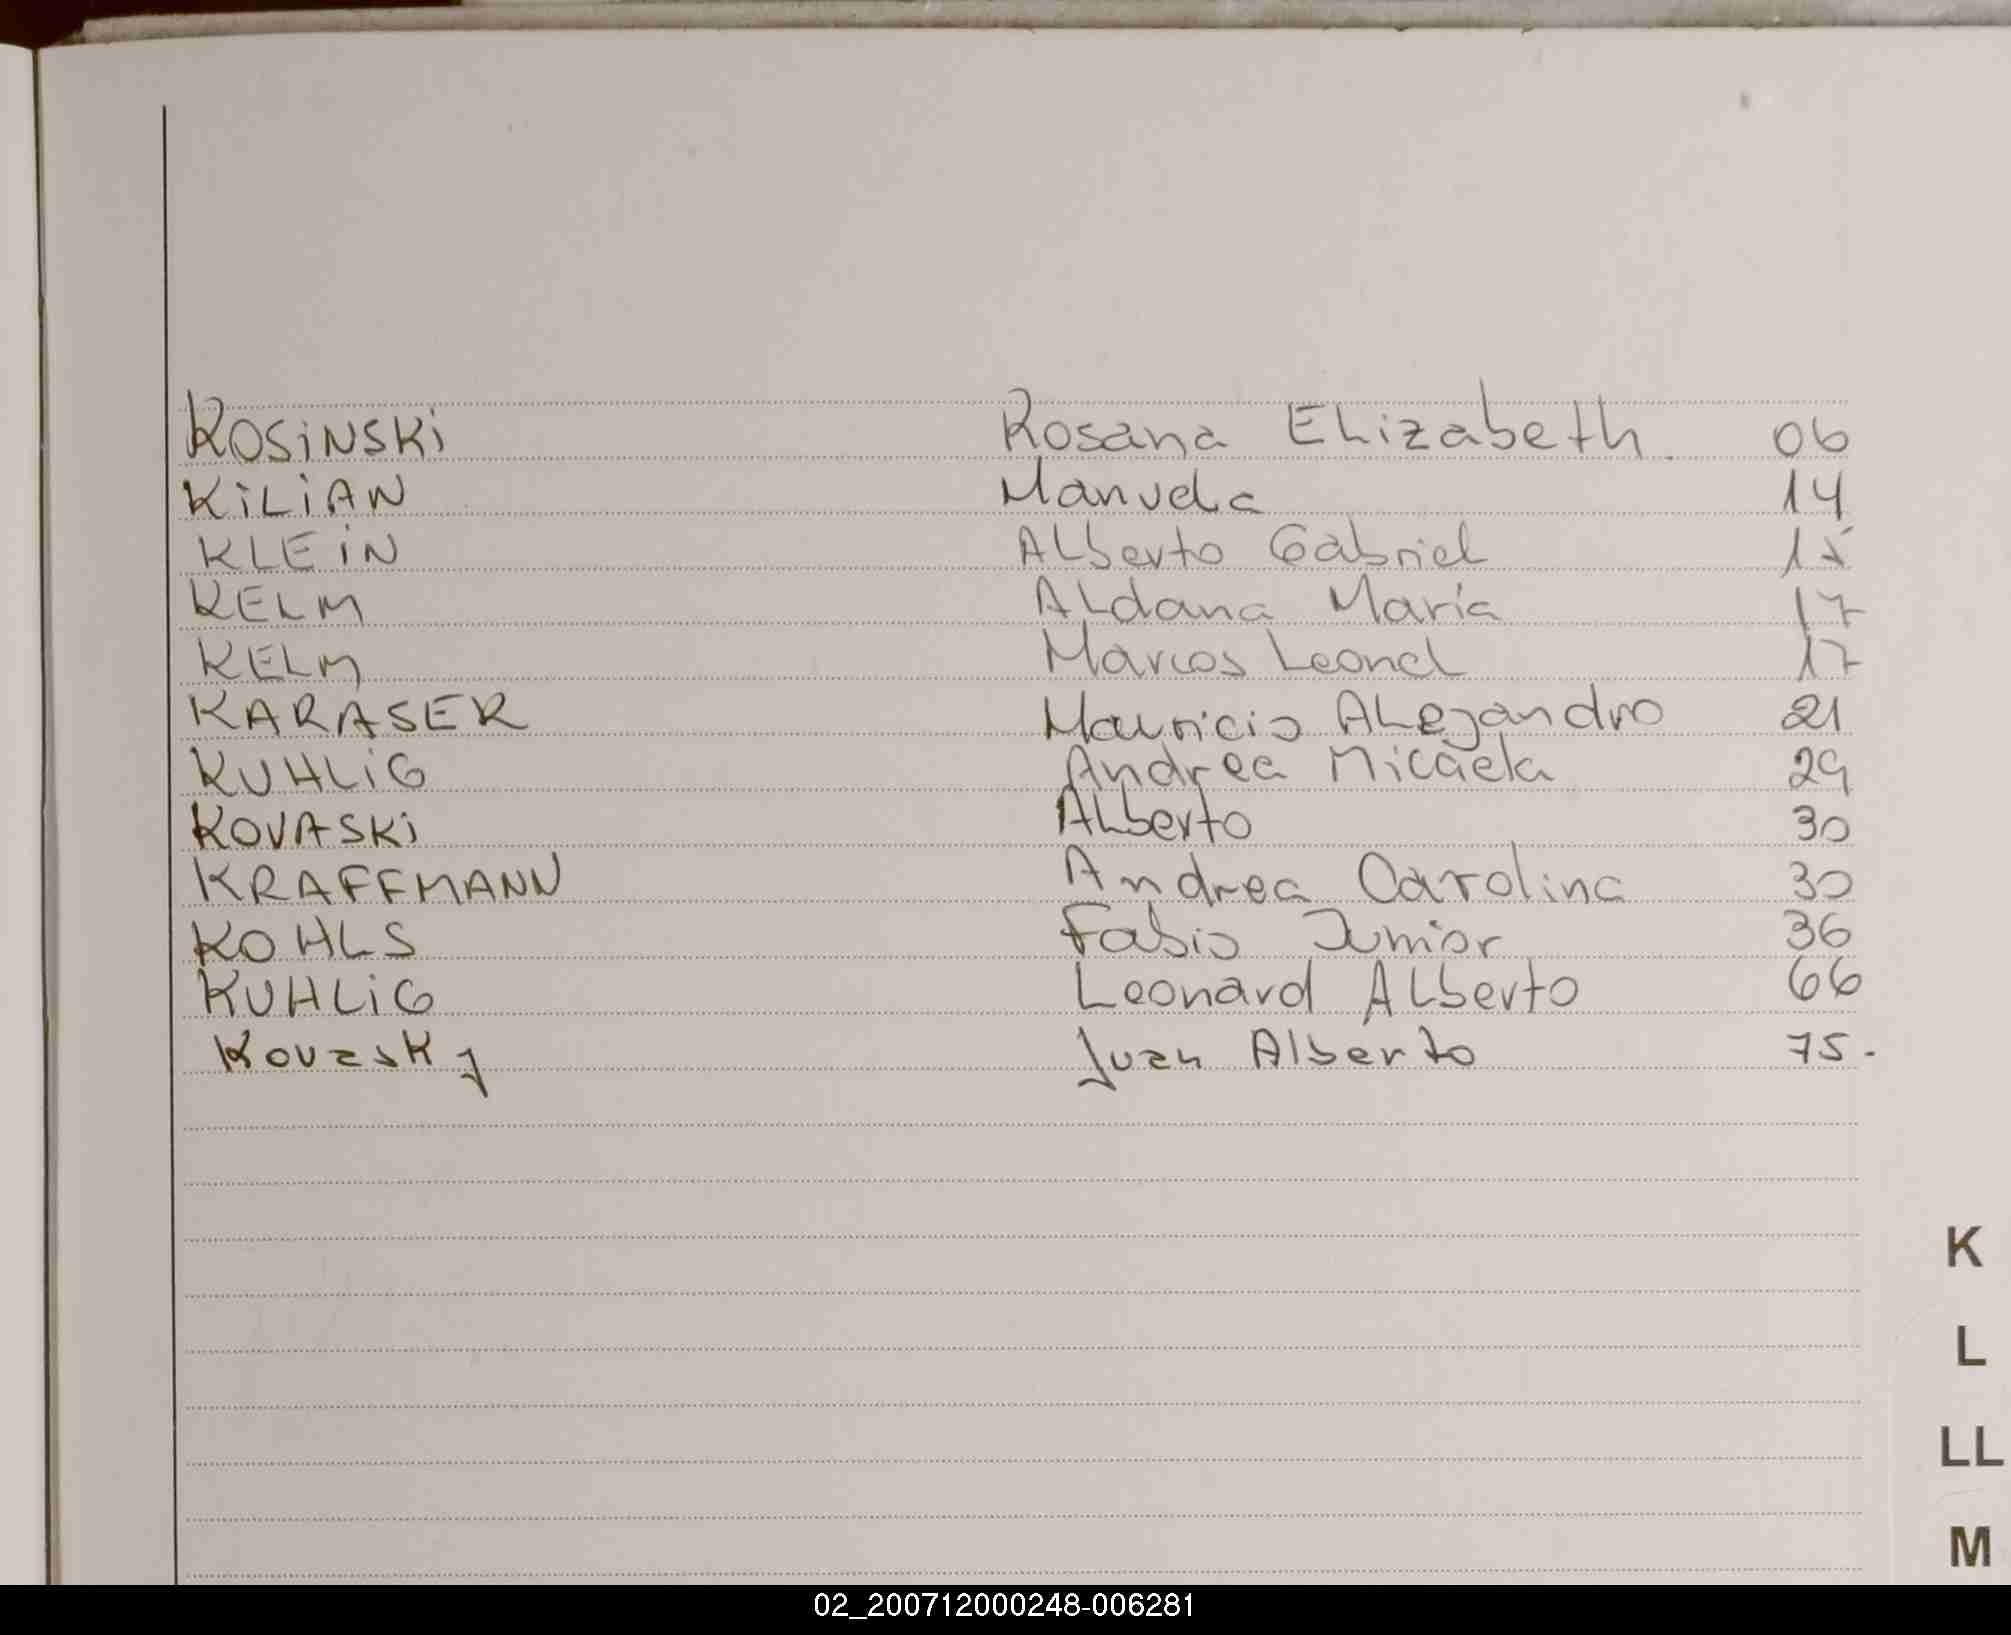 KOSiNSKi Rosana Elizabeth. 06
KiLiAN Manuela 14
KLEiN Alberto Gabriel 15
KELM Aldana María 17
KELM Marcos Leonel 17
KARASER Mauricio Alejandro 21
KUHLiG Andrea Micaela 29
KOVASKi Alberto 30
KRAFFMANN Andrea Carolina 30
KOHLS Fabio Junior 36
KUHLiG Leonard Alberto 66
Kovasky Juan Alberto 75.
K
L
LL
M
02_200712000248-006281